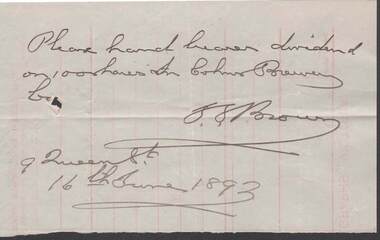 Please hand bearer dividend
on 100 shares in Cohns Brewery
Co
F. S. Brown
9 Queen St.
16th June 1893